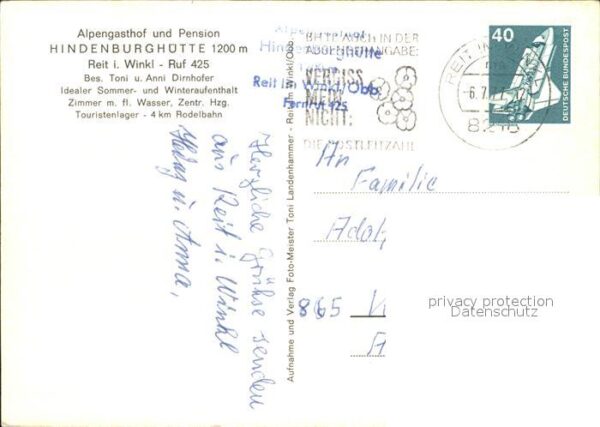 Alpengasthof und Pension
HINDENBURGHÜTTE 1200 m
Reit i. Winkl - Ruf 425
Bes. Toni u. Anni Dirnhofer
Idealer Sommer- und Winteraufenthalt
Zimmer m. fl. Wasser, Zentr. Hzg.
Touristenlager - 4 km Rodelbahn
Herzliche Grüße senden
aus Reit i. Winkl
Helag u. Anna,
Aufnahme und Verlag Foto-Meister Toni Landenhammer - Reit im Winkl/Obb.
Hindenburghütte
Reit im Winkl/Obb
Fernruf 425
BITTE AUCH IN DER
ABSENDERANGABE:
VERGISS
MEIN
NICHT:
DIE POSTLEITZAHL
REIT IM
40
DEUTSCHE BUNDESPOST
An
Familie
Adol
865
privacy protection
Datenschutz